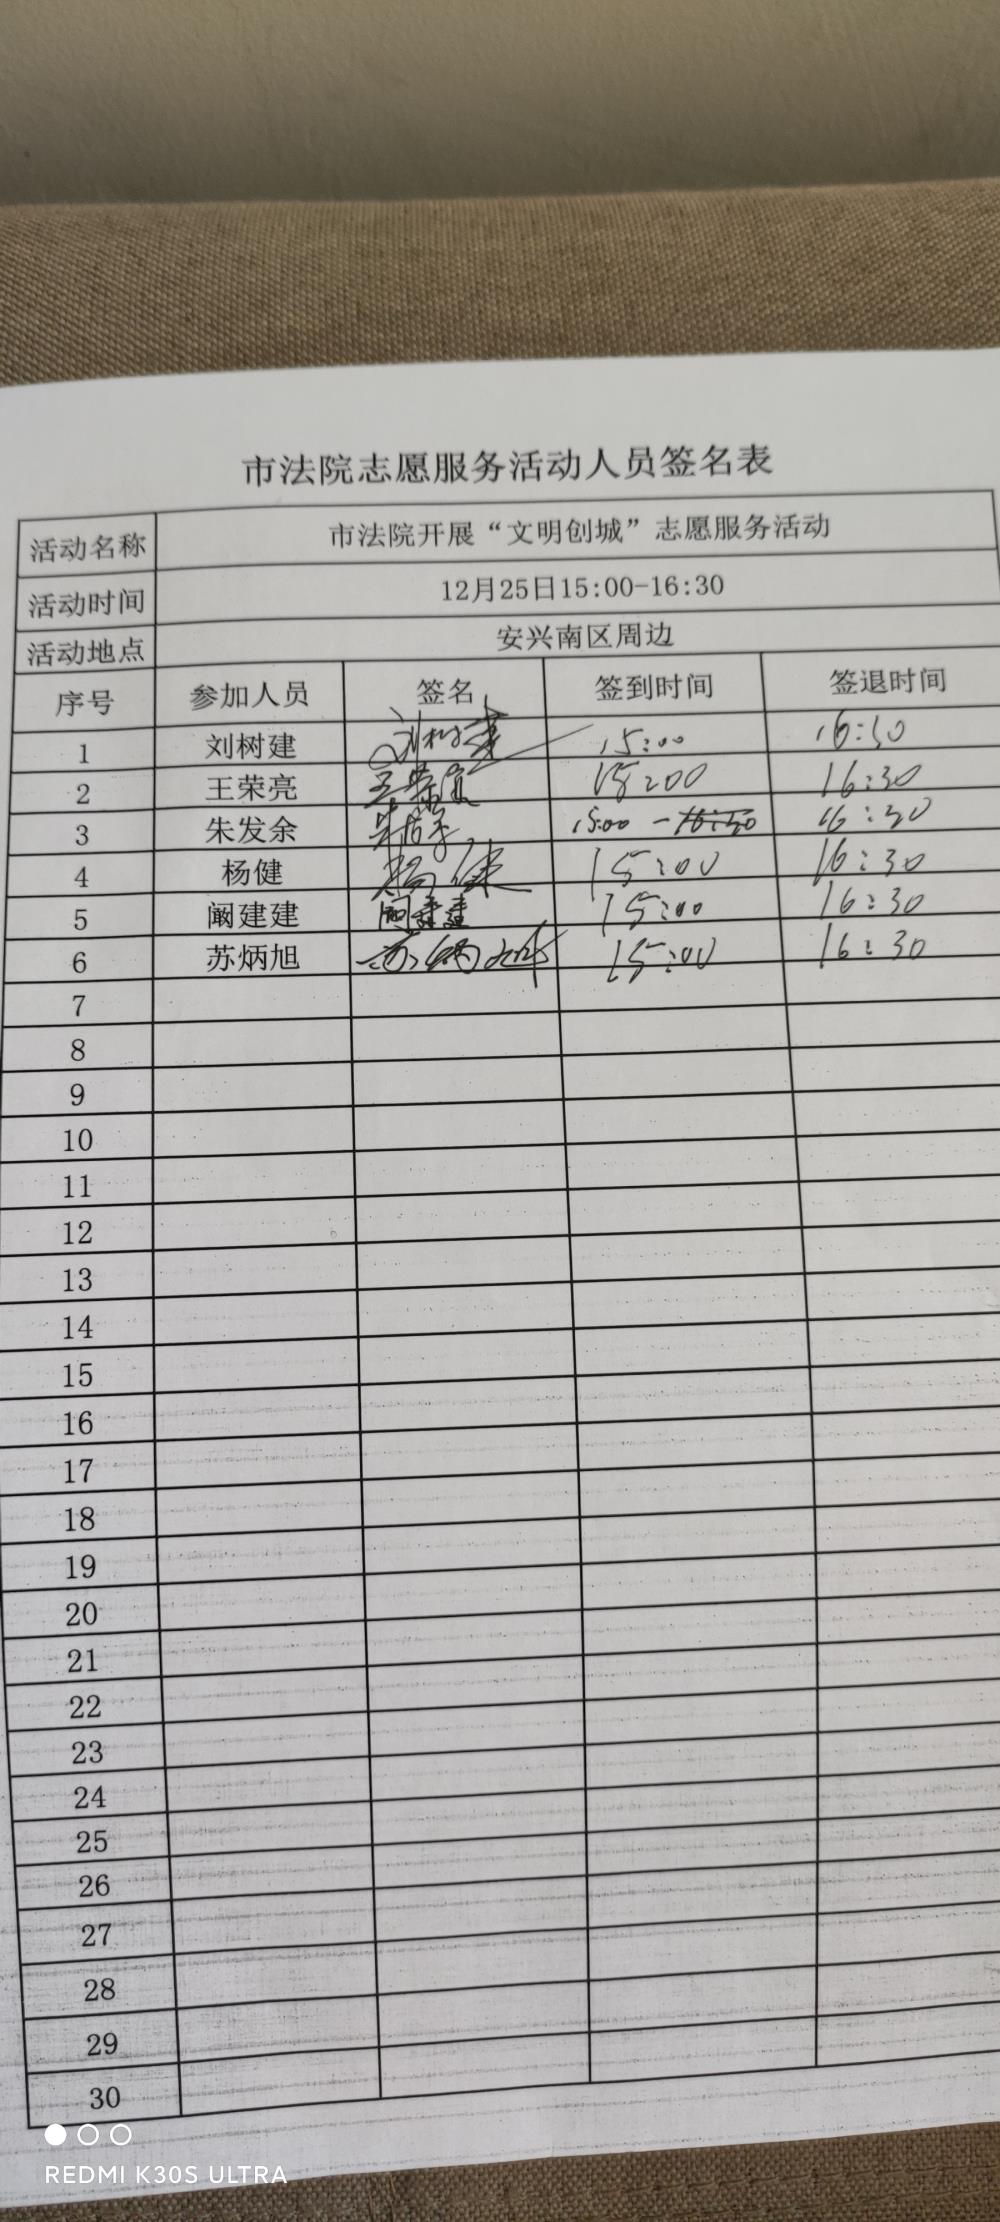 市法院志愿服务活动人员签名表
活动名称 市法院开展“文明创城”志愿服务活动
活动时间 12月25日15:00-16:30
活动地点 安兴南区周边
序号 参加人员 签名 签到时间 签退时间
1 刘树建 刘树建 15:00 16:30
2 王荣亮 王荣亮 15:00 16:30
3 朱发余 朱发余 15:00 -16:30 16:30
4 杨健 杨健 15:00 16:30
5 阚建建 阚建建 15:00 16:30
6 苏炳旭 苏炳旭 15:00 16:30
7
8
9
10
11
12
13
14
15
16
17
18
19
20
21
22
23
24
25
26
27
28
29
30
REDMI K30S ULTRA